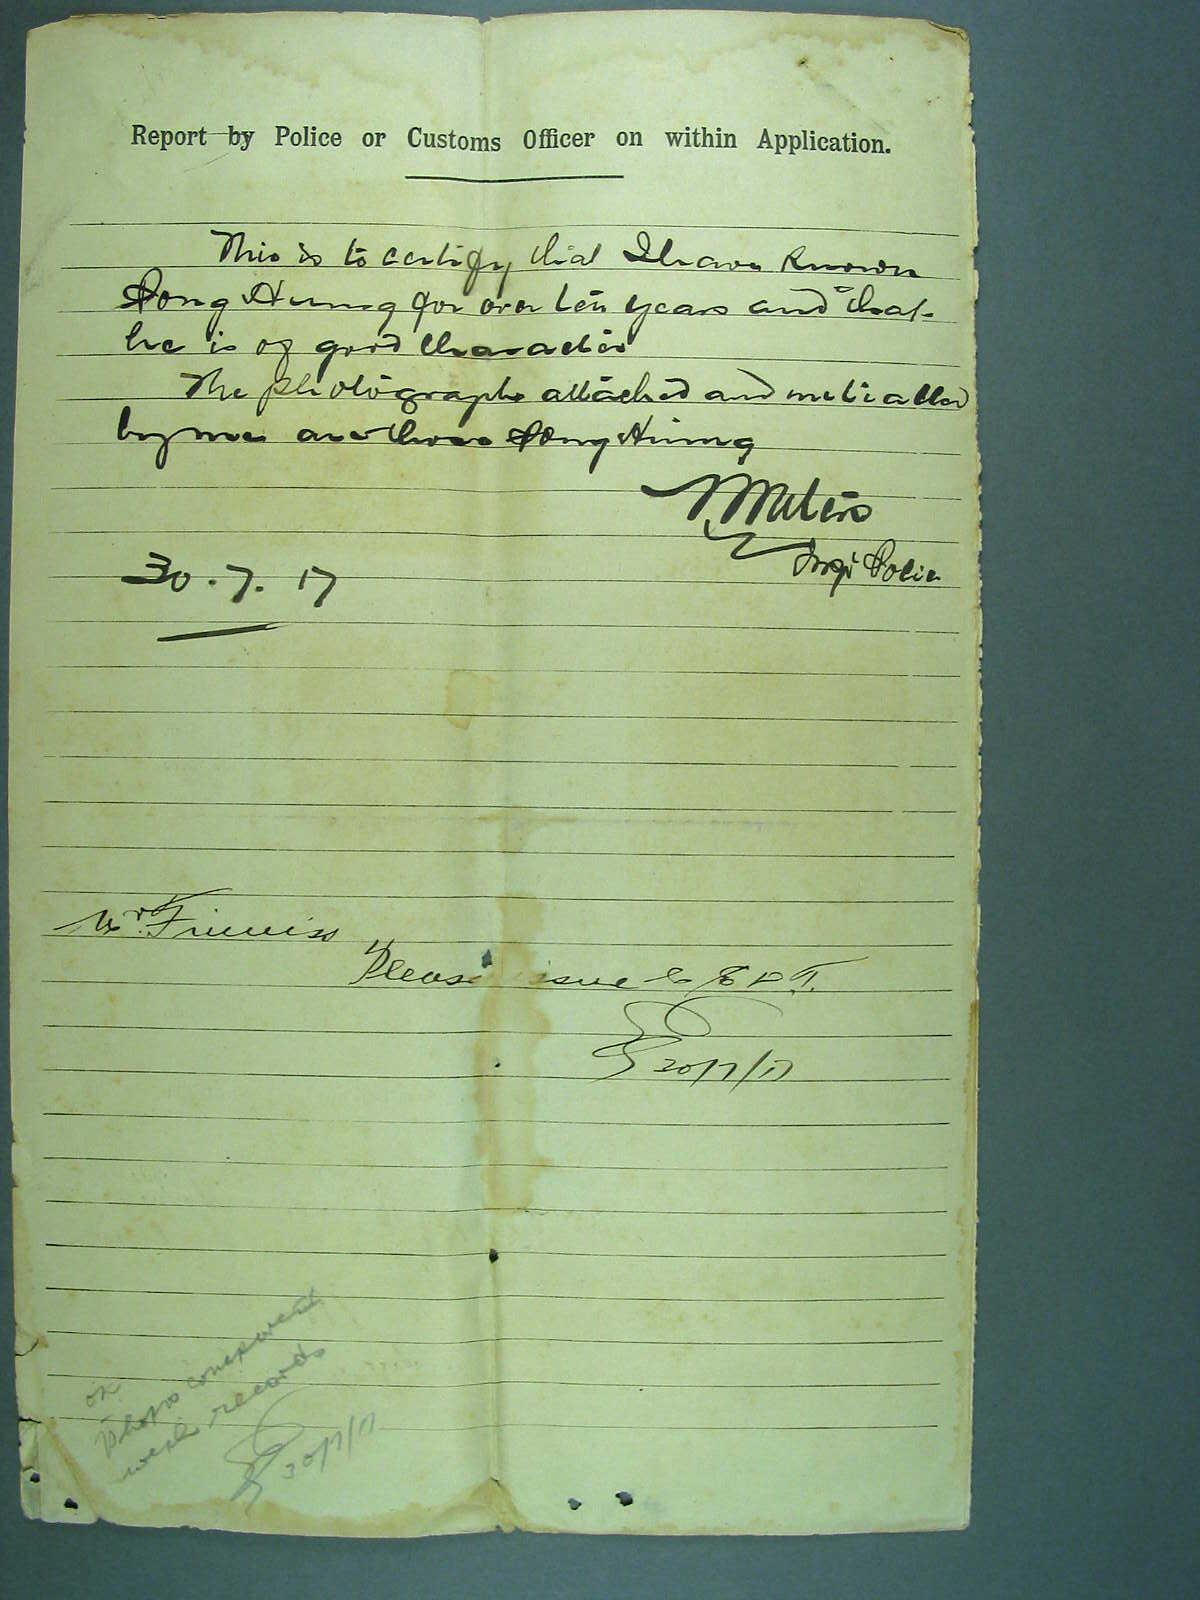 Report by Police or Customs Officer on within Application.
This is to certify that I have known
Pong Hung for over ten years and that
he is of good character
The photographs attached and initialled
by me are those Pong Hung
Insp Police
30.7.17
Mr
Please issue C E D T.
30/7/17
OK
Photos compared
with records
30/7/17